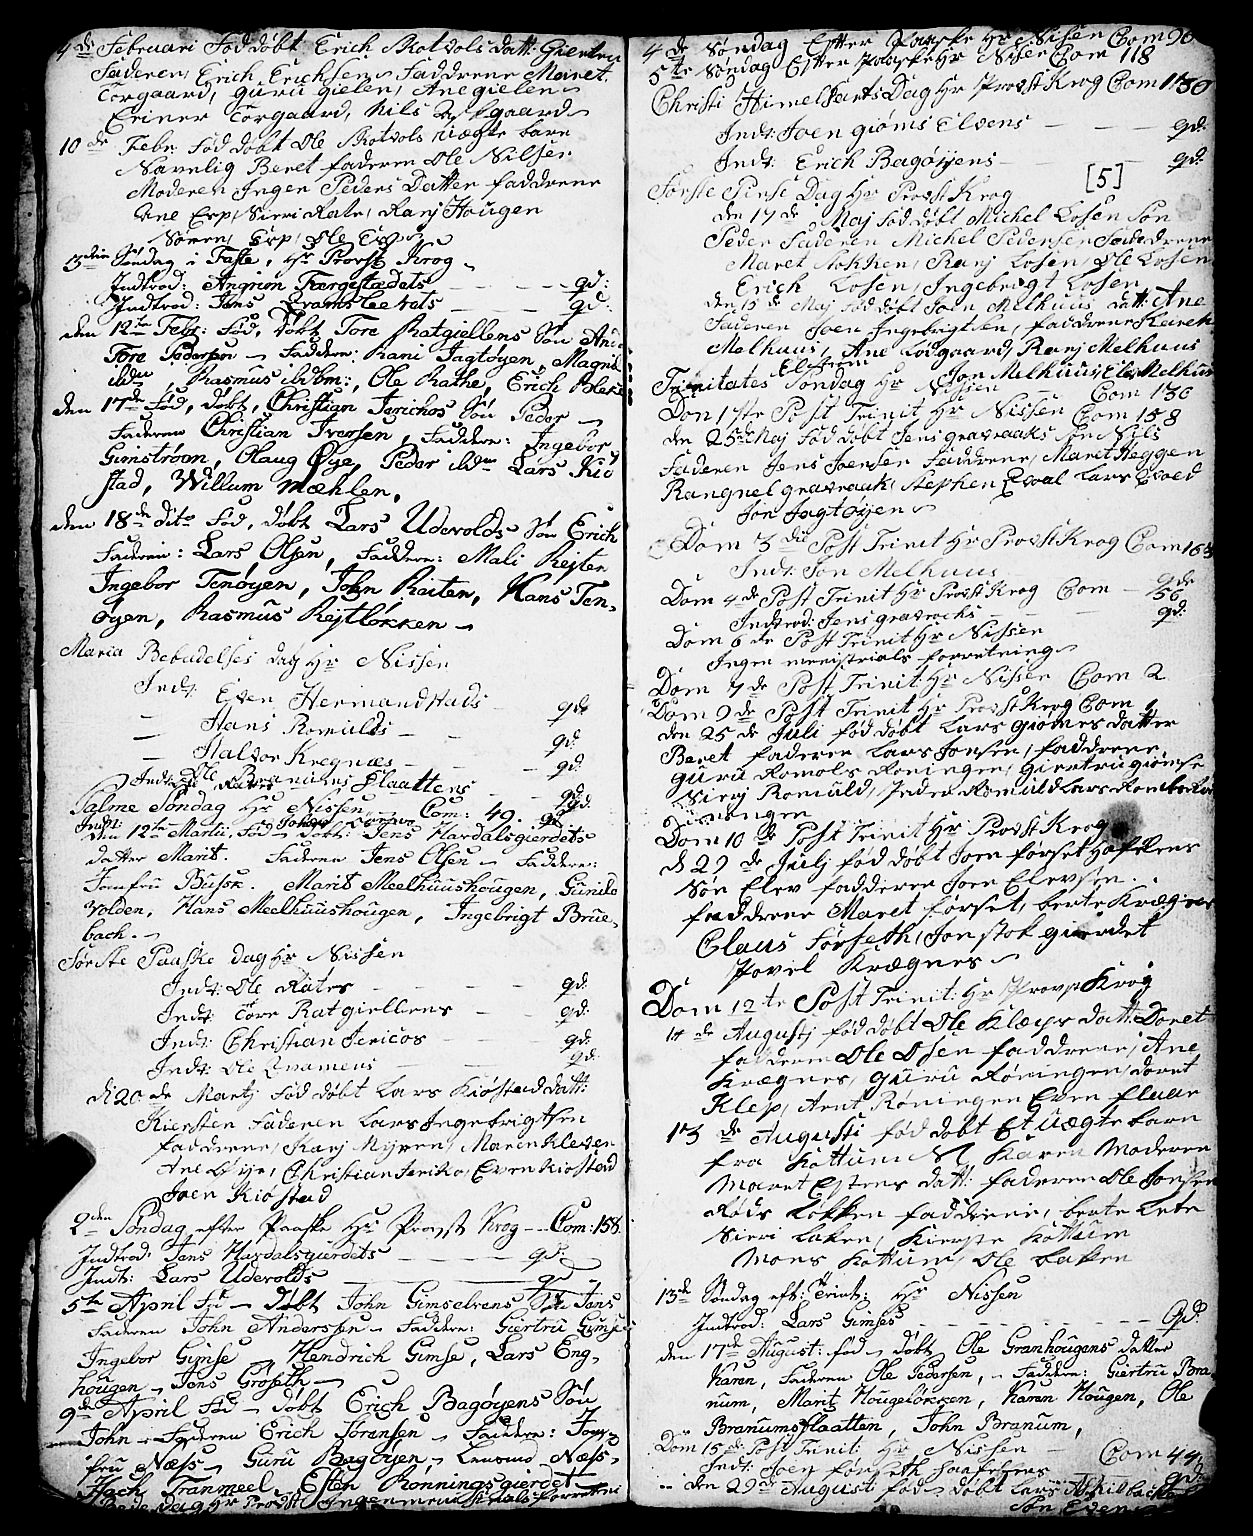 4de Februari Fød døbt Erich Skotvols datt: Giertru
Faderen Erich Erichsen Fadderne Maret
Torgaard, Guru Gielen, Ane gielen
Torgaard, Nils
10de Febr. Fød døbt Ole Skotvols uægte barn
Navnlig Beret faderen Ole Nilsen
Moderen Ingen Peders Datter fadderne
Ane Erp, Sirri Rate, Ranj Hougen
Søren Erp, Ole Erp
3die Søndag i Faste, Hr Provst Krog
Indtrod: Angrim Fergestædets — gd:
Indtrod: Jens Evamsleetets gd:
den 12te Febr: Fød, Døbt Tore Ratgiellens Søn And
Tore Pedersen — Faddere: Rani Jagtøyen, Magnil
ibdm, Rasmus ibdm:, Ole Rathe, Erich Bleke
den 17de Fød, Døbt, Christian Jerichos Søn Peder
Faderen Christian Iversen, Faddere: Ingebor
Gimstroen, Olaug Øye, Peder ibdm Lars Kiø
stad, Willum Mæhlen.
den 18de dito Fød, døbt Lars Udevolds Søn Erich
Faderen: Lars Olsen, Faddere: Mali Rejten
Ingebor Tenøyen, John Raiten, Hans Ten-
øyen, Rasmus Rejtløkken
Maria Bebudelses dag Hr Nissen
Indt: Even Hermandstads gd.
— Hans Romulds — — gd.
— Halvor Kregnæs — gd.
Indt: Ole Branems Slaattens gd.
Palme Søndag Hr Nissen Com: 49.
den 12te Martii. Fød — Døbt: Jens Hardalsgierdets
datter Marit. Faderen Jens Olsen — Faddere:
Jomfru Bussk. Marit Meelhuushougen, Gunild
Volden, Hans Meelhuushougen, Ingebrigt Brue-
bach.
Første Paaske dag Hr Nissen
Indt: Ole Rates — — — gd.
Indt: Tore Ratgiellens — gd.
Indt: Christian Jericos — gd.
Indt: Ole Evamens gd.
d: 20de Martj Fød døbt Lars Kiøstad datt:
Kiersten Faderen Lars Ingebrigtsen
fadderne, Karj Myren, Maren Kleven
Ane Øye, Christian Jeriko, Even Kiøstad
Joen Kiøstad
2den Søndag efter Paaske Hr Provst Krog — Com: 158.
Indtrod: Jens Hardalsgierdets — gd:
Indt: Lars Udevolds — gd:
5te April Fød — Døbt John Gimselvens Søn Jens
Faderen John Andersen — Faddere: Giertru Gimse
Ingebor Gimse Hendrich Gimse, Lars Eng-
hougen — Jens Groseth
9de April Fød — døbt Erich Bagøyens Søn
John — Faderen Erich Joransen — Faddere: Jom-
fru Næss, Guru Bagøyen, Næss
Hach Tranmeel, Esten Rønningsgierdet
Bededag Hr Provst Ingen menistrials forretni
4de Søndag Efter Paaske Hr Nissen Com 90
5te Søndag Efter Paaske Hr Nissen Com 118
Christi Himelfarts Dag Hr Provst Krog Com 130
Indt: Joen giøms Elvens — gd:
Indt: Erich Bagøyens — gd:
[5]
Første Pinse Dag Hr Provst Krog
den 17de Maj fød døbt Michel Losen Søn
Peder Faderen Michel Pedersen Fadderne
Maret Nokken, Ranj Losen, Ole Losen
Erich Losen, Ingebrigt Losen
den 15de Maj fød døbt Joen Melhuus datt: Ane
Faderen Joen Ingebrigtsen, fadderne
Melhuus, Ane Lodgaard, Ranj Melhuus
Jon Melhuus, Elev Melhuus
Trinitates Søndag Hr Nissen Com 130
Dom 1ste Post Trinit Hr Nissen Com 158
den 25de Maj fød døbt Jens gravraaks søn Nils
Faderen Jens Joensen Fadderne, Maret Heggen
Rangnel gravraak, Stephen Evol Lars Evol
Jon Jagtøyen
Dom 3die Post Trinit Hr Provst Krog Com 163
Indt: Jon Melhuus gd.
Dom 4de Post Trinit Hr Provst Krog Com — 56
Indtrod: Jens gravrocks gd:
Dom 6te Post Trinit Hr Nissen
Ingen menistrials forretning
Dom 7de Post Trinit Hr Nissen Com 2
Dom 9de Post Trinit Hr Provst Krog Com
den 25de Juli fød døbt Lars giømes datter
Beret faderen Lars Jonsen, faddrene,
guru Romols Røningen, giertru giømse
Sirrj Romuld, Peder Romuld Lars
Dom 10de Post Trinit Hr Provst Krog
d 29de Julj fød døbt Joen forset hofelens
Søn Elev fadderen Joen Elevsen
fadderne Maret forset, berte Krægnes
Claus Forseth, Jon stok gierdet
Povel Krægnes
Dom 12te Post Trinit: Hr Provst Krog
10de Augustj fød døbt Ole Kleps datt: Doret
fadderen Ole Olsen faddrene, Ane
Krægnes, Guru Røningen, doret
Klep, Arnt Røningen Even flaae
13de Augusti fød døbt Et uægte barn
fra Køttum Karen Moderen
Maret Estens datt: faderen Ole Jonsen
Røis Løkken faddrene, berte Lete
Sirri baken, Kierste Køttum
Mons Køttum, Ole baken
13de Søndag eft: Trint: Hr Nissen
Indtrod: Lars Gimses — gd:
den 17de August: fød — døbt Ole Granhougens datter
Karen, Faderen Ole Pedersen, — Faddere: Giertru Bra-
num, Marit Hougeløkken, Karen Hougen, Ole
Branumsslaatten, John Branum,
Dom 15de Post Trinit: Hr Nissen — Com 44.
Indt: Joen forseth hanfelens gd.
den 29de August fød døbt Lars
Søn Even